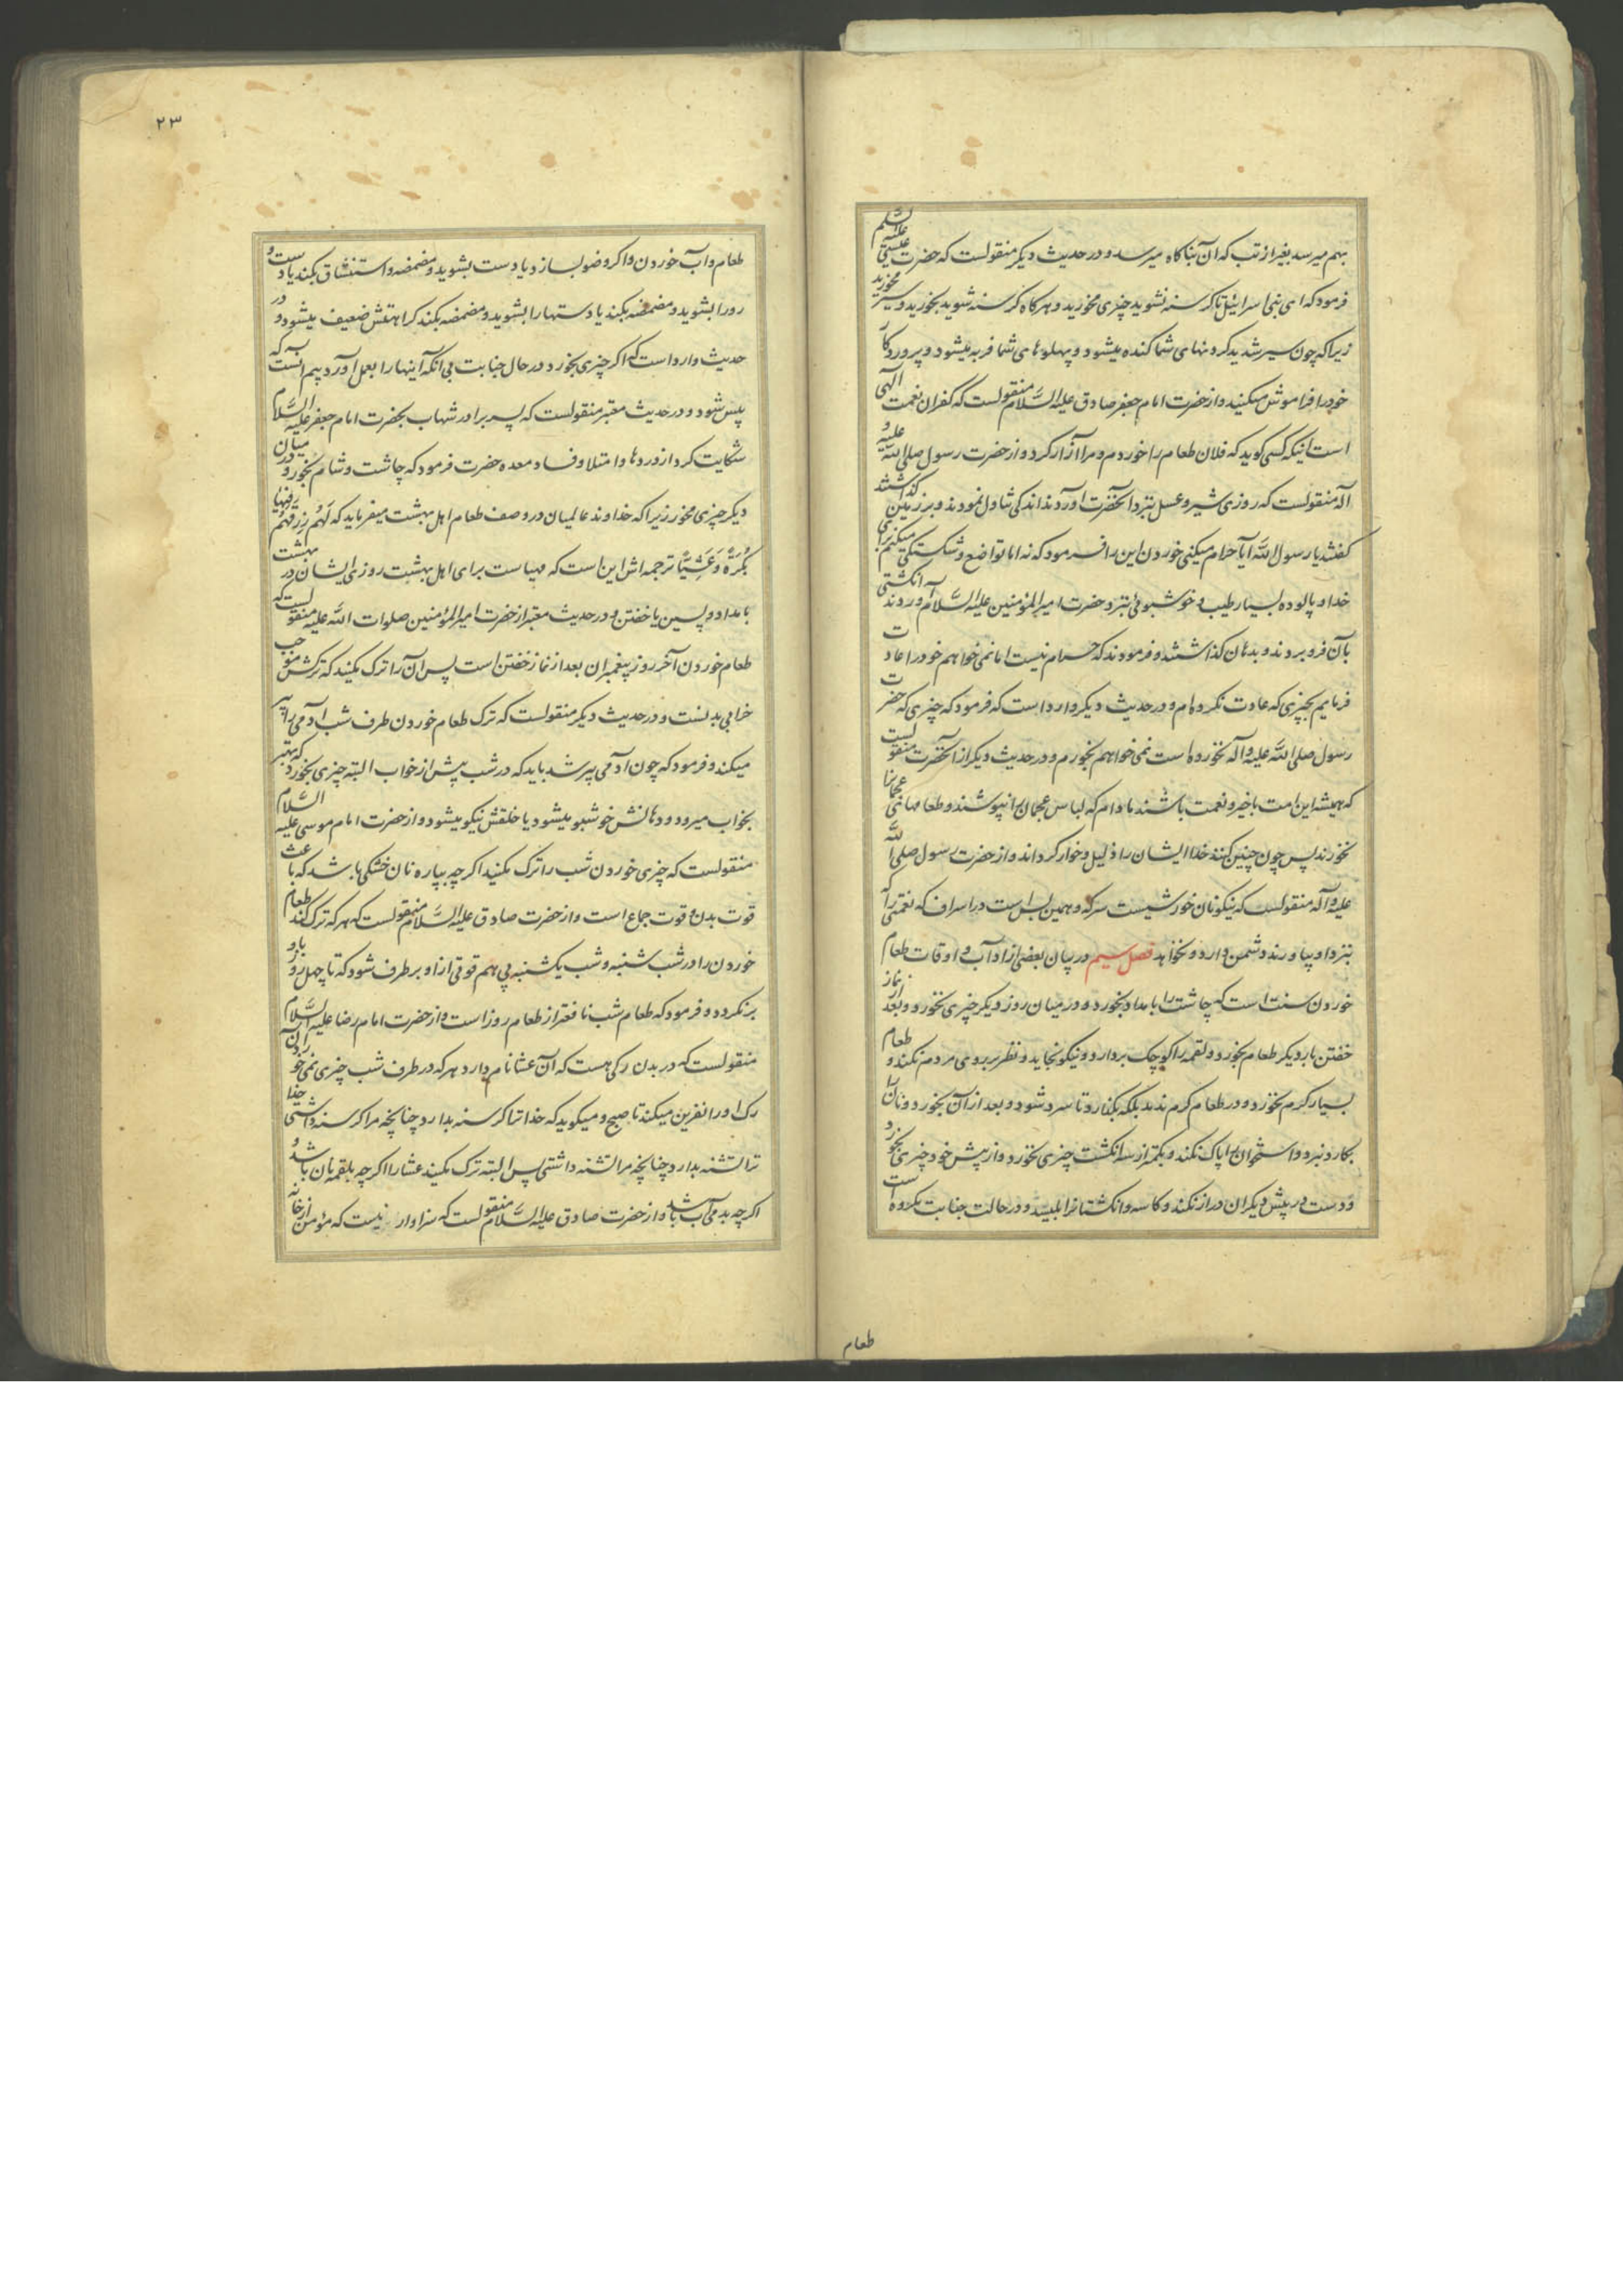 بهم میرسد بغیر از تب که آن بناکاه میرسد و در حدیث دیکر منقولست که حضرت عیسی علیه السلم
فرمود که ای بنی اسرائیل تا کرسنه نشوید چیزی مخورید و هرکاه کرسنه شوید بخورید و سیر مخورید
زیرا که چون سیر شدید کردنهای شما کنده میشود و پهلوهای شما فربه میشود و پروردکار
خود را فراموش میکنید و از حضرت امام جعفر صادق علیه السَّلام منقولست که کفران نعمت الهی
است اینکه کسی کوید که فلان طعام را خوردم و مرا آزار کرد و از حضرت رسول صلی اللّه علیه و
آله منقولست که روزی شیر و عسل بنزد آنحضرت آوردند اندکی تناول نمودند و بر زمین کذاشتند
کفتند یا رسول اللّه آیا حرام میکنی خوردن این را فرمود که نه اما تواضع و شکستکی میکنم برای
خدا و پالوده بسیار طیب و خوشبوئی بنزد حضرت امیر المؤمنین علیه السَّلام آوردند انکشتی
بآن فرو بردند و بدهان کذاشتند و فرمودند که حرام نیست اما نمی خواهم خود را عادت
فرمایم بچیزی که عادت نکرده ام و در حدیث دیکر وارد است که فرمود که چیزی که حضرت
رسول صلی اللّه علیه و آله نخورده است نمی خواهم بخورم و در حدیث دیکر از آنحضرت منقولست
که همیشه این امت با خیر و نعمت باشند مادام که لباس عجمان را نپوشند و طعامهای عجمانرا
نخورند پس چون چنین کنند خدا ایشان را ذلیل و خوار کرداند و از حضرت رسول صلی اللّه
علیه و آله منقولست که نیکو نان خورشیست سرکه و همین بس است در اسراف که نعمتی را که
بنزد او بیاورند دشمن دارد و نخواهد فصل سیم در بیان بعضی از آداب و اوقات طعام
خوردن سنت است که چاشت را بامداد بخورد و در میان روز دیکر چیزی نخورد و بعد از نماز
خفتن بار دیکر طعام بخورد و لقمه را کوچک بردارد و نیکو بخاید و نظر بر روی مردم نکند و طعام
بسیار کرم نخورد و در طعام کرم ندمد بلکه بکذارد تا سرد شود و بعد از آن بخورد و نان را
بکارد نبرد و استخوان را پاک نکند و بکمتر از سه انکشت چیزی نخورد و از پیش خود چیزی بخورد
و دست در پیش دیکران دراز نکند و کاسه و انکشتانرا بلیسد و در حالت جنابت مکروه است
طعام
۲۳
طعام و آب خوردن و اکر وضو بسازد یا دست بشوید و مضمضه و استنشاق بکند یا دست و
رو را بشوید و مضمضه بکند یا دستها را بشوید و مضمضه بکند کراهتش ضعیف میشود و در
حدیث وارد است که اکر چیزی بخورد در حال جنابت بی آنکه اینها را بعمل آورد بیم آنست که
پیس شود و در حدیث معتبر منقولست که پسر برادر شهاب بحضرت امام جعفر علیه السَّلام
شکایت کرد از دردها و امتلا و فساد معده حضرت فرمود که چاشت و شام بخور و در میان
دیکر چیزی مخور زیرا که خداوند عالمیان در وصف طعام اهل بهشت میفرماید که لَهُم رِزقُهُم فِیهَا
بُکرَةً وَ عَشِیًّا ترجمه اش این است که مهیاست برای اهل بهشت روزی ایشان در بهشت
بامداد و پسین یا خفتن و در حدیث معتبر از حضرت امیر المؤمنین صلوات اللّه علیه منقولست که
طعام خوردن آخر روز پیغمبران بعد از نماز خفتن است پس آن را ترک مکنید که ترکش موجب
خرابی بدنست و در حدیث دیکر منقولست که ترک طعام خوردن طرف شب آدمی را پیر
میکند و فرمود که چون آدمی پیر شد باید که در شب پیش از خواب البته چیزی بخورد که بهتر
بخواب میرود و دهانش خوشبو میشود یا خلقش نیکو میشود و از حضرت امام موسی علیه السَّلام
منقولست که چیزی خوردن شب را ترک مکنید اکر چه بپاره نان خشکی باشد که باعث
قوت بدن و قوت جماع است و از حضرت صادق علیه السَّلام منقولست که هر که ترک کند طعام
خوردن را در شب شنبه و شب یکشنبه پی هم قوتی از او برطرف شود که تا چهل روز باو
برنکردد و فرمود که طعام شب نافعتر از طعام روز است و از حضرت امام رضا علیه السَّلام
منقولست که در بدن رکی هست که آن عشا نام دارد هر که در طرف شب چیزی نمی خورد آن
رک او را نفرین میکند تا صبح و میکوید که خدا ترا کرسنه بدارد چنانچه مرا کرسنه داشتی خدا
ترا تشنه بدارد چنانچه مرا تشنه داشتی پس البته ترک مکنید عشا را اکر چه بلقمه نان باشد و
اکر چه بدمی آب باشد و از حضرت صادق علیه السَّلام منقولست که سزاوار نیست که مؤمن از خانه